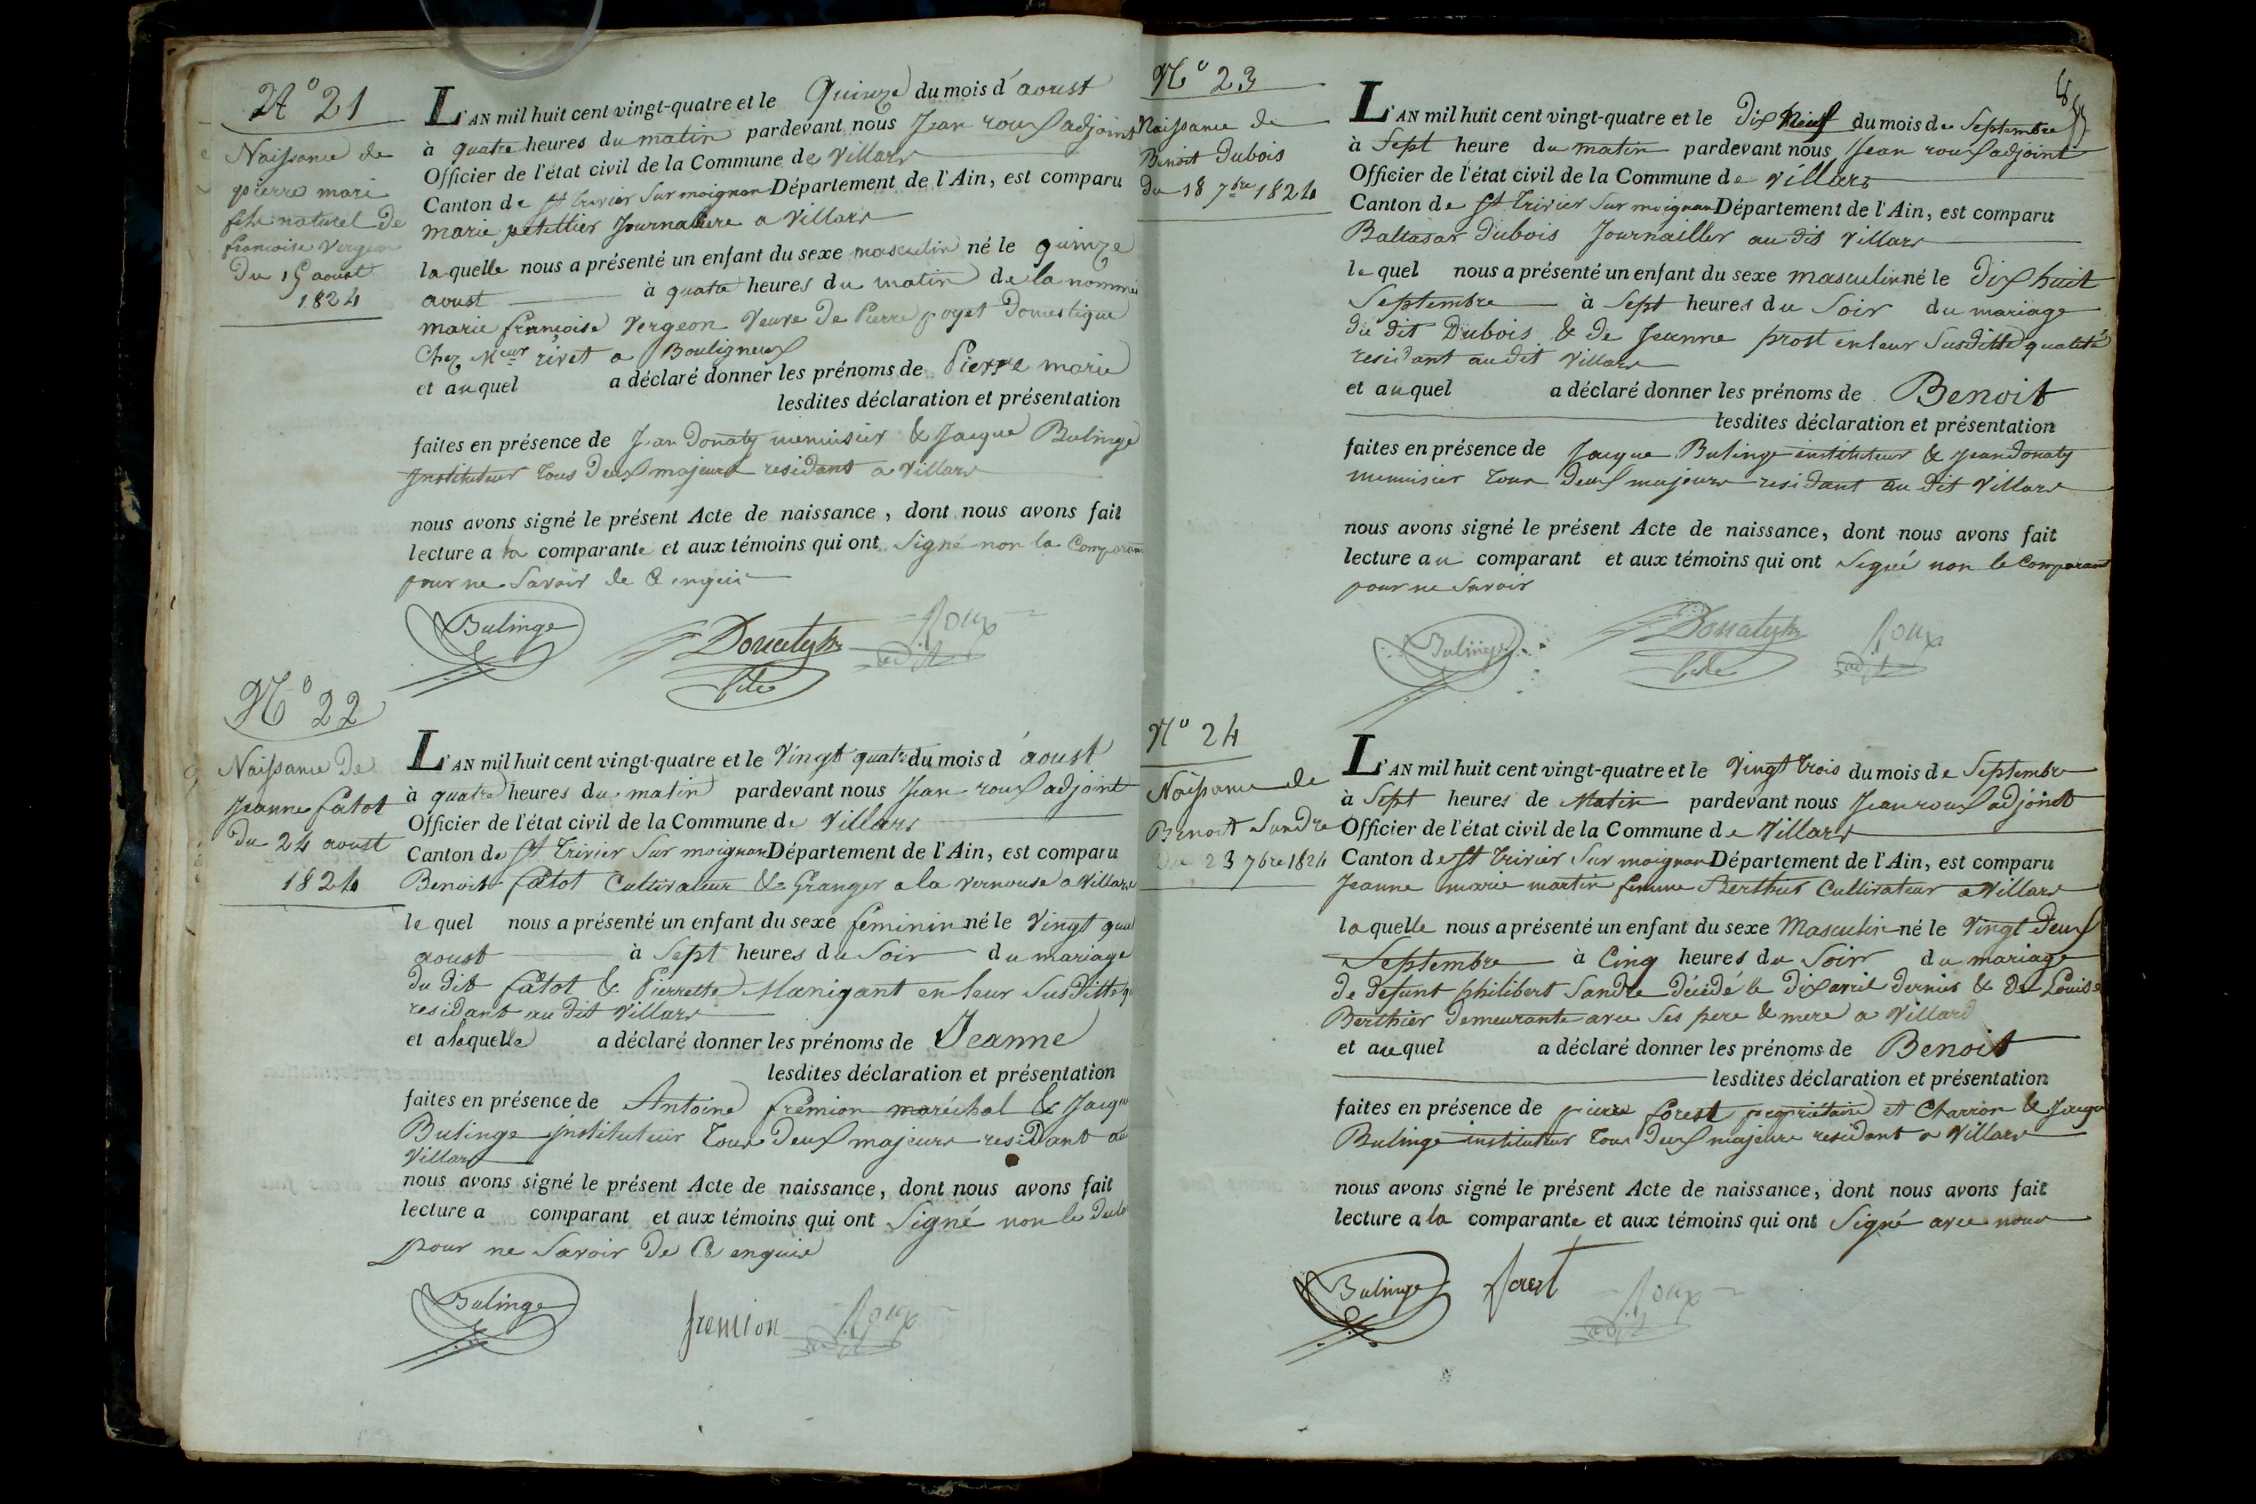 N° 21
Naissance de
pierre mari
fils naturel de
francoise Vergeon
Du 15 aoust
1824
L'AN mil huit cent vingt-quatre et le Quinze du mois d'aoust
à quatre heures du matin pardevant nous Jean roux adjoint
Officier de l'état civil de la Commune de Villars
Canton de St trivier Sur moignan Département de l'Ain, est comparu
marie petettier Journaliere a Villars
laquelle nous a présenté un enfant du sexe masculin né le quinze
aoust à quatre heures du matin de la nommée
marie françoise Vergeon Veuve De Pierre poyet Domestique
Chez Mr rivet a Bouligneux
et auquel a déclaré donner les prénoms de Pierre marie
lesdites déclaration et présentation
faites en présence de Jean Donaty menuisier & Jacque Bulinge
Instituteur tous Deux majeurs residant a Villars
nous avons signé le présent Acte de naissance, dont nous avons fait
lecture a la comparante et aux témoins qui ont Signé non la Comparante
pour ne Savoir de Ce enquis
Bulinge Donaty Roux
adjt
N° 22
Naissance De
Jeanne fatot
Du 24 aoust
1824
L'AN mil huit cent vingt-quatre et le Vingt quatre du mois d'aoust
à quatre heures du matin pardevant nous Jean roux adjoint
Officier de l'état civil de la Commune de Villars
Canton de St Trivier Sur moignan Département de l'Ain, est comparu
Benoit fatot Cultivateur & Granger a la Vernouse a Villars
le quel nous a présenté un enfant du sexe féminin né le Vingt quat
aoust à Sept heures du Soir du mariage
Du dit fatot & Pierrette Manigant en leur Susditte q
residant au dit Villars
et a laquelle a déclaré donner les prénoms de Jeanne
lesdites déclaration et présentation
faites en présence de Antoine fremion maréchal & Jacque
Bulinge instituteur Tous Deux majeurs residant a
Villars
nous avons signé le présent Acte de naissance, dont nous avons fait
lecture a comparant et aux témoins qui ont Signé non le
pour ne Savoir De Ce enquis
Bulinge fremion Roux
adjt
N° 23
Naissance de
Benoit Dubois
Du 18 7bre 1824
L'AN mil huit cent vingt-quatre et le Dix Neuf du mois de Septembre
à Sept heure du matin pardevant nous Jean roux adjoint
Officier de l'état civil de la Commune de Villars
Canton de St Trivier Sur moignan Département de l'Ain, est comparu
Baltasar Dubois Journailler au dit Villars
le quel nous a présenté un enfant du sexe masculin né le Dix huit
Septembre à Sept heures du Soir du mariage
du dit Dubois & de Jeanne prost en leur Susditte qualité
residant au dit Villars
et auquel a déclaré donner les prénoms de Benoit
lesdites déclaration et présentation
faites en présence de Jacque Bulinge instituteur & Jean Donaty
menuisier Tous Deux majeurs residant au dit Villars
nous avons signé le présent Acte de naissance, dont nous avons fait
lecture au comparant et aux témoins qui ont Signé non le Comparant
pour ne Savoir
Bulinge Donaty Roux
adjt
N° 24
Naissance de
Benoit Sandre
Du 23 7bre 1824
L'AN mil huit cent vingt-quatre et le Vingt Trois du mois de Septembre
à Sept heures de Matin pardevant nous Jean roux adjoint
Officier de l'état civil de la Commune de Villars
Canton de St Trivier Sur moignan Département de l'Ain, est comparu
Jeanne marie martin femme Berthier Cultivateur a Villars
laquelle nous a présenté un enfant du sexe Masculin né le Vingt Deux
Septembre à Cinq heures du Soir du mariage
de defunt philibert Sandre décédé le Dix avril Dernier & De Louise
Berthier Demeurante avec Ses pere & mere a Villard
et auquel a déclaré donner les prénoms de Benoit
lesdites déclaration et présentation
faites en présence de pierre forest propriétaire et Charron & Jacque
Bulinge instituteur Tous Deux majeure residant a Villars
nous avons signé le présent Acte de naissance, dont nous avons fait
lecture a la comparante et aux témoins qui ont Signé avec nous
Bulinge forest Roux
adjt